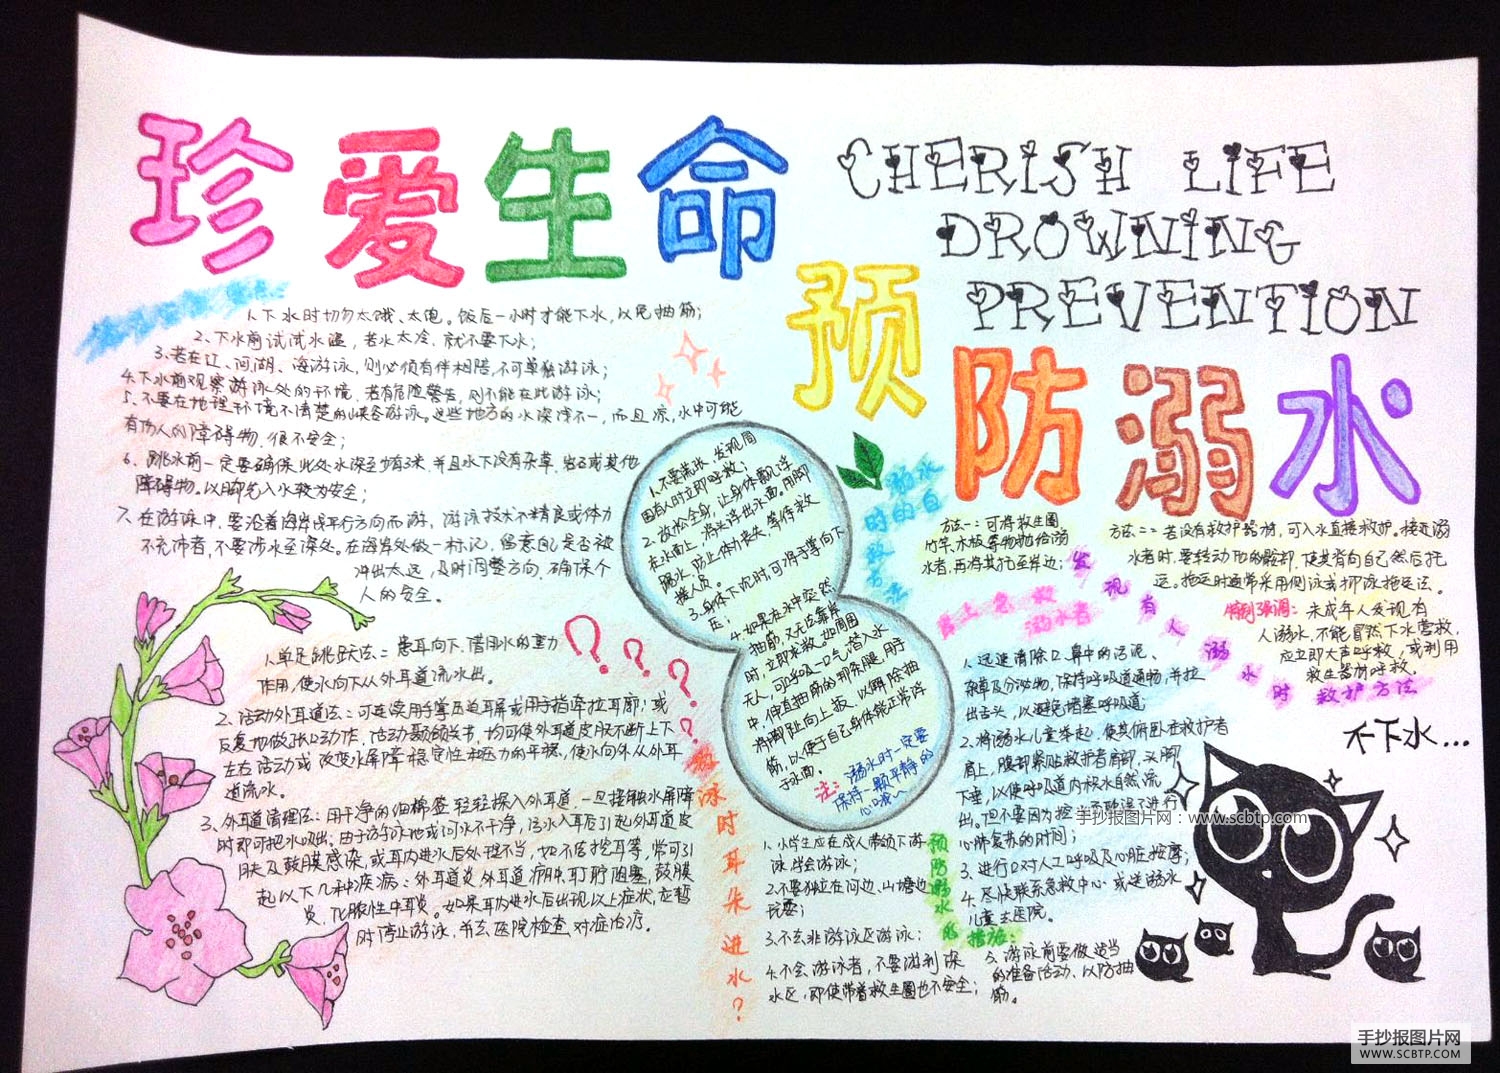 珍爱生命
CHERISH LIFE
DROWNING
PREVENTION
预防溺水
1.下水时切勿太饿、太饱。饭后一小时才能下水,以免抽筋;
2、下水前试试水温,若水太冷,就不要下水;
3、若在江、河、湖、海游泳,则必须有伴相陪,不可单独游泳;
4.下水前观察游泳处的环境,若有危险警告,则不能在此游泳;
5、不要在地理环境不清楚的峡谷游泳。这些地方的水深浅不一,而且凉,水中可能
有伤人的障碍物,很不安全;
6、跳水前一定要确保此处水深至少有3米,并且水下没有杂草、岩石或其他
障碍物。以脚先入水较为安全;
7、在游泳中,要沿着海岸线平行方向而游,游泳技术不精良或体力
不充沛者,不要涉水至深处。在海岸处做一标记,留意自己是否被
冲出太远,及时调整方向,确保个
人的安全。
1.单足跳跃法:患耳向下,借用水的重力
作用,使水向下从外耳道流水出。
2、活动外耳道法:可连续用手掌压迫耳屏或用手指牵拉耳廓;或
反复地做张口动作,活动颞颌关节,均可使外耳道皮肤不断上下
左右活动或改变水屏障稳定性和压力的平衡,使水向外从外耳
道流水。
3、外耳道清理法:用干净的细棉签轻轻探入外耳道,一旦接触水屏障
时即可把水吸出。由于游泳池或河水不干净,污水入耳后引起外耳道皮
肤及鼓膜感染,或耳内进水后处理不当,如不洁挖耳等,常可引
起以下几种疾病:外耳道炎、外耳道疖肿、耵聍阻塞、鼓膜
炎、化脓性中耳炎。如果耳内进水后出现以上症状,应暂
时停止游泳,并去医院检查,对症治疗。
???
?
游泳时耳朵进水?
1.不要慌张,发现周
围有人时立即呼救;
2、放松全身,让身体飘浮
在水面上,将头浮出水面。用脚
踢水,防止体力丧失,等待救
援人员。
3.身体下沉时,可将手掌向下
压;
4.如果在水中突然
抽筋,又无法靠岸
时,立即求救。如周围
无人,可深吸一口气潜入水
中,伸直抽筋的那条腿,用手
将脚趾向上扳,以解除抽
筋,以便于自己身体能正常浮
于水面。
注:溺水时一定要
保持一颗平静的
心哦~
溺水时的自救方法
方法一:可将救生圈、
竹竿、木板等物抛给溺
水者,再将其托至岸边;
方法二:若没有救护器材,可入水直接救护。接近溺
水者时,要转动他的髋部,使其背向自己然后拖
运。拖运时通常采用侧泳或仰泳拖运法。
特别强调:未成年人发现有
人溺水,不能冒然下水营救,
应立即大声呼救,或利用
救生器材呼救。
发现有人溺水时救护方法
岸上急救
溺水者
1.迅速清除口、鼻中的污泥、
杂草及分泌物,保持呼吸道通畅,并拉
出舌头,以避免堵塞呼吸道
2、将溺水儿童举起,使其俯卧在救护者
肩上,腹部紧贴救护者肩部,头脚
下垂,以使呼吸道内积水自然流
出。但不要因为控水而耽误了进行
心肺复苏的时间;
3、进行口对口人工呼吸及心脏按摩;
4、尽快联系急救中心或送溺水
儿童去医院。
1、小学生应在成人带领下游
泳,学会游泳;
2、不要独立在河边、山塘边
玩耍;
3.不去非游泳区游泳;
4、不会游泳者,不要游到深
水区,即使带着救生圈也不安全;
5、游泳前要做适当
的准备活动、以防抽
筋。
预防溺水的措施:
不下水...
手抄报图片网:www.scbtp.com
手抄报图片网
WWW.SCBTP.COM